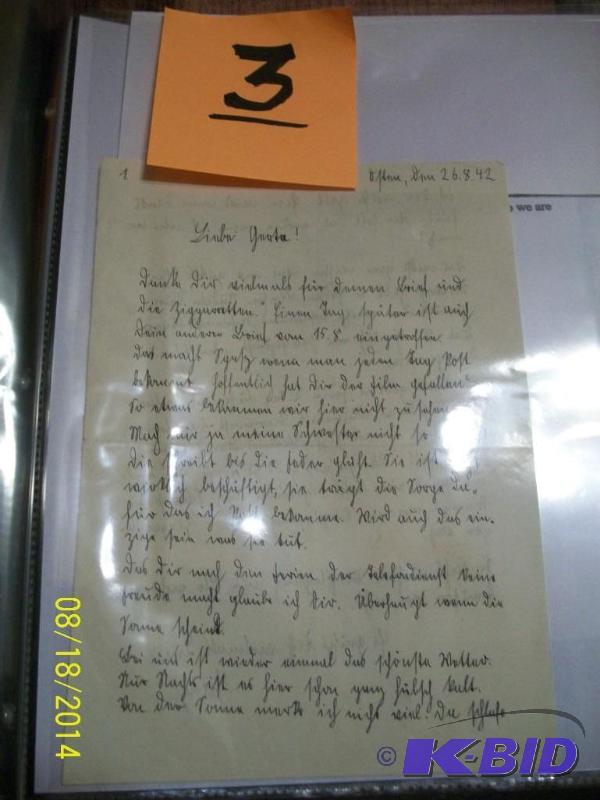 3
1
Osten, den 26.8.42
o we are
Liebe Gerta!
Danke Dir vielmals für Deinen Brief und
die Ziggaretten. Einen Tag später ist auch
Dein anderer Brief vom 15.8. eingetroffen.
Das macht Spaß wenn man jeden Tag Post
bekommt hoffentlich hat Dir der Film gefallen.
So etwas bekommen wir hier nicht zu sehen
Mach mir ja meine Schwester nicht so
die schreibt bis die Feder glüht. Sie ist
wirklich beschäftigt, sie trägt die Sorge da-
für das ich Post bekomme. Wird auch das ein-
zige sein was sie tut.
Das Dir nach den Ferien der Telefondienst keine
Freude macht glaube ich Dir. Überhaupt wenn die
Sonne scheint.
Bei uns ist wieder einmal das schönste Wetter.
Nur Nachts ist es hier schon ganz hübsch kalt.
Von der Sonne merk ich nicht viel. Da schlafe
08/18/2014
© K-BID